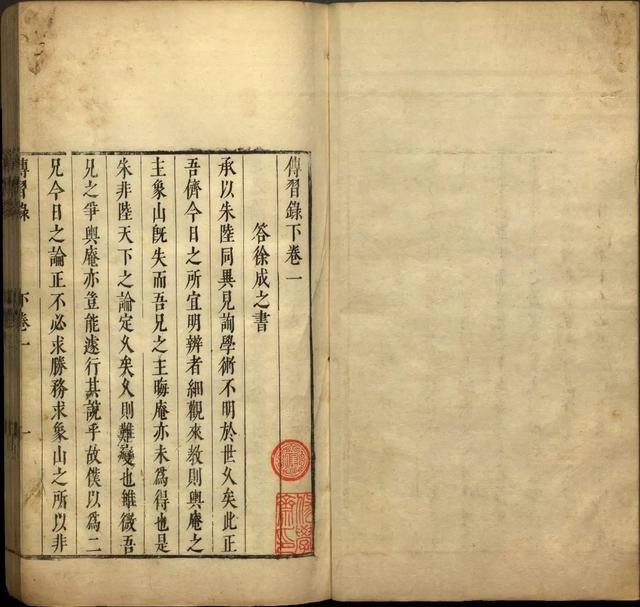 傳習錄下卷一
答徐成之書
承以朱陸同異見詢學術不明於世久矣此正
吾儕今日之所宜明辨者細觀來教則輿庵之
主象山旣失而吾兄之主晦庵亦未為得也是
朱非陸天下之論定久矣久則難變也雖微吾
兄之爭輿庵亦豈能遽行其說乎故僕以為二
兄今日之論正不必求勝務求象山之所以非
傳習錄 下卷一 一